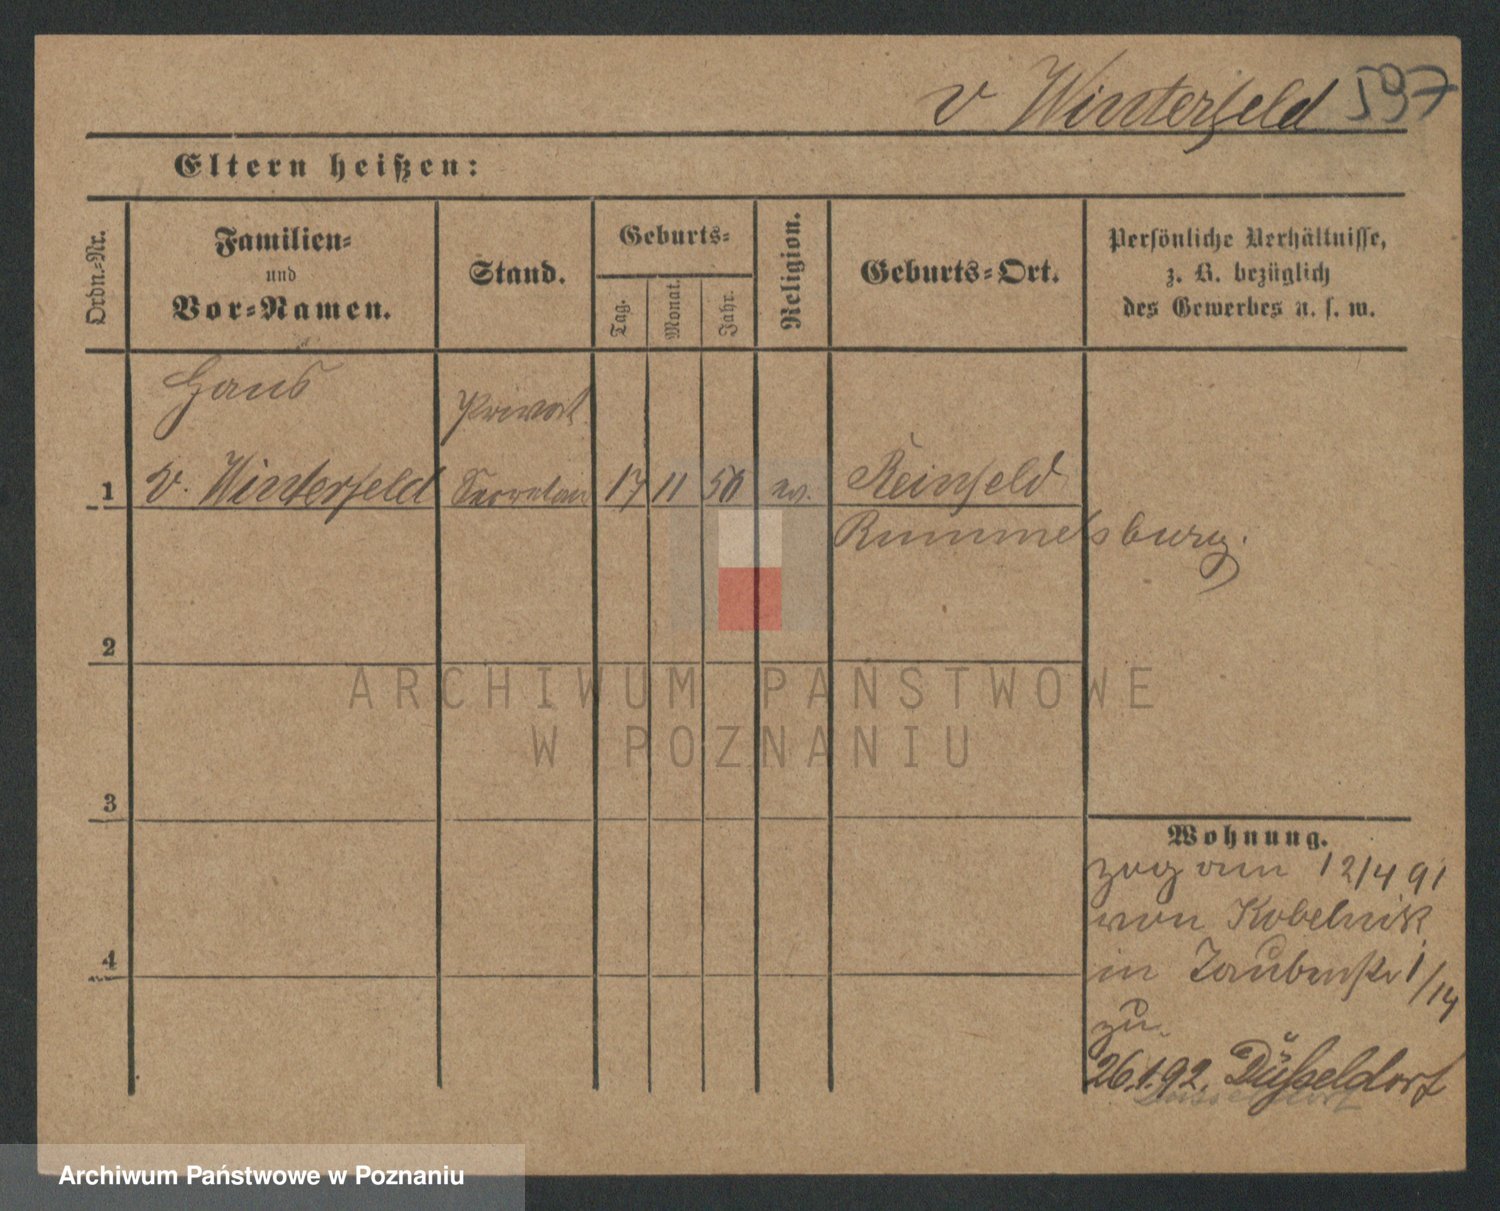 v Winterfeld 597
Eltern heißen:
Ordn.-Nr.
Familien-
und
Vor-Namen.
Stand.
Geburts-
Tag.
Monat.
Jahr.
Religion.
Geburts-Ort.
Persönliche Verhältnisse,
z. B. bezüglich
des Gewerbes u. s. w.
Hans
Privat
1 v. Winterfeld Secretair 17 11 50 ev. Reinfeld
Rummelsburg.
2
3
4
Wohnung.
zog am 12/4 91
von Kobelnik
in Taubenstr 1/14
zu.
26.1.92. Düsseldorf
Düsseldorf
ARCHIWUM PAŃSTWOWE
W POZNANIU
Archiwum Państwowe w Poznaniu